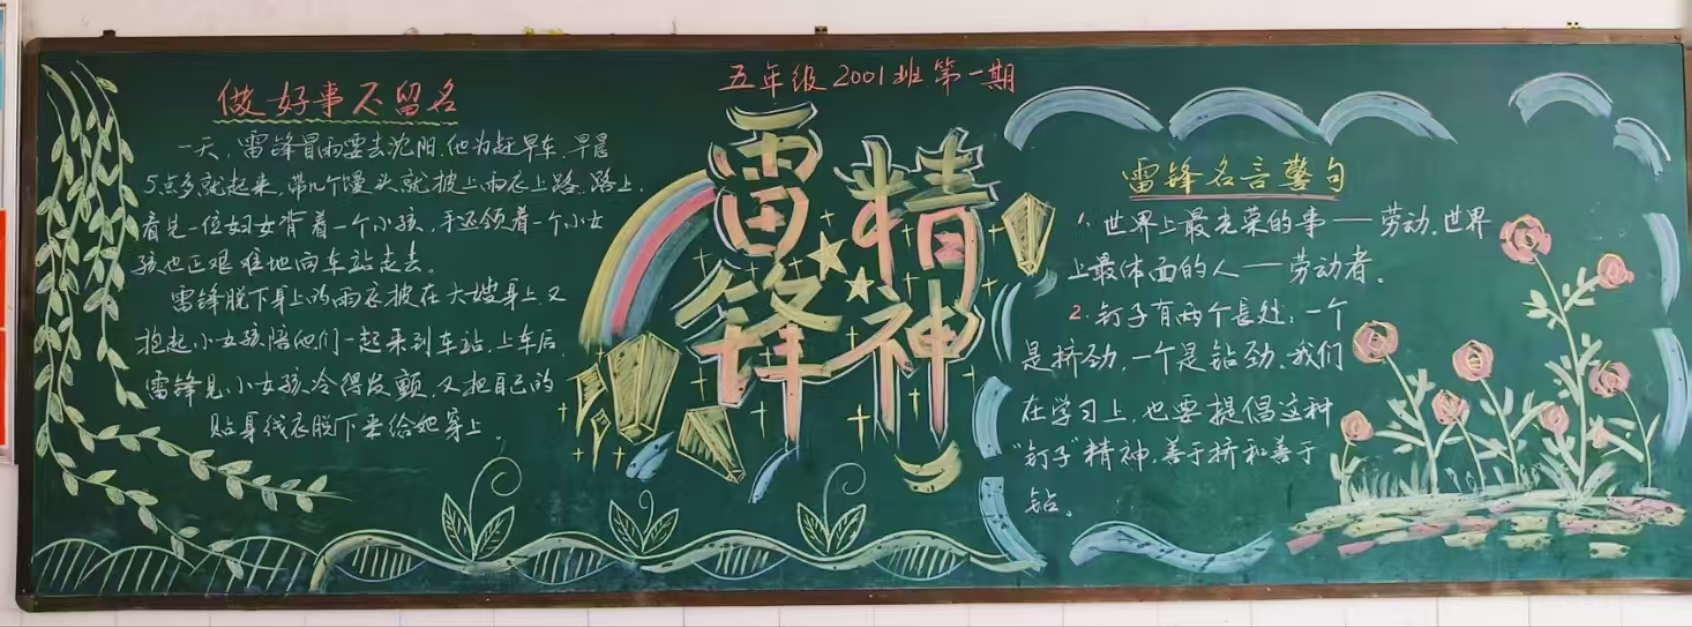 五年级2001班第一期
做好事不留名
一天,雷锋冒雨要去沈阳,他为赶早车,早晨
5点多就起来,带几个馒头就披上雨衣上路,路上,
看见一位妇女背着一个小孩,手还领着一个小女
孩也正艰难地向车站走去。
雷锋脱下身上的雨衣披在大嫂身上,又
抱起小女孩陪他们一起来到车站,上车后,
雷锋见小女孩冷得发颤,又把自己的
贴身线衣脱下来给她穿上。
雷锋
精神
雷锋名言警句
1. 世界上最光荣的事——劳动,世界
上最体面的人——劳动者。
2. 钉子有两个长处:一个
是挤劲,一个是钻劲,我们
在学习上,也要提倡这种
“钉子”精神,善于挤和善于
钻。